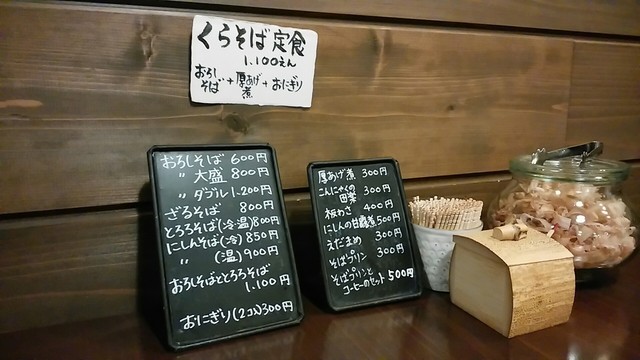 くらそば定食
1.100えん
おろし
そば + 厚あげ
煮 + おにぎり
おろしそば 600円
〃 大盛 800円
〃 ダブル 1.200円
ざるそば 800円
とろろそば(冷温)800円
にしんそば(冷) 850円
〃 (温) 900円
おろしそばととろろそば
1.100円
おにぎり(2コ)300円
厚あげ煮 300円
こんにゃくの
田楽 300円
板わさ 400円
にしんの甘露煮 500円
えだまめ 300円
そばプリン 300円
そばプリンと
コーヒーのセット 500円